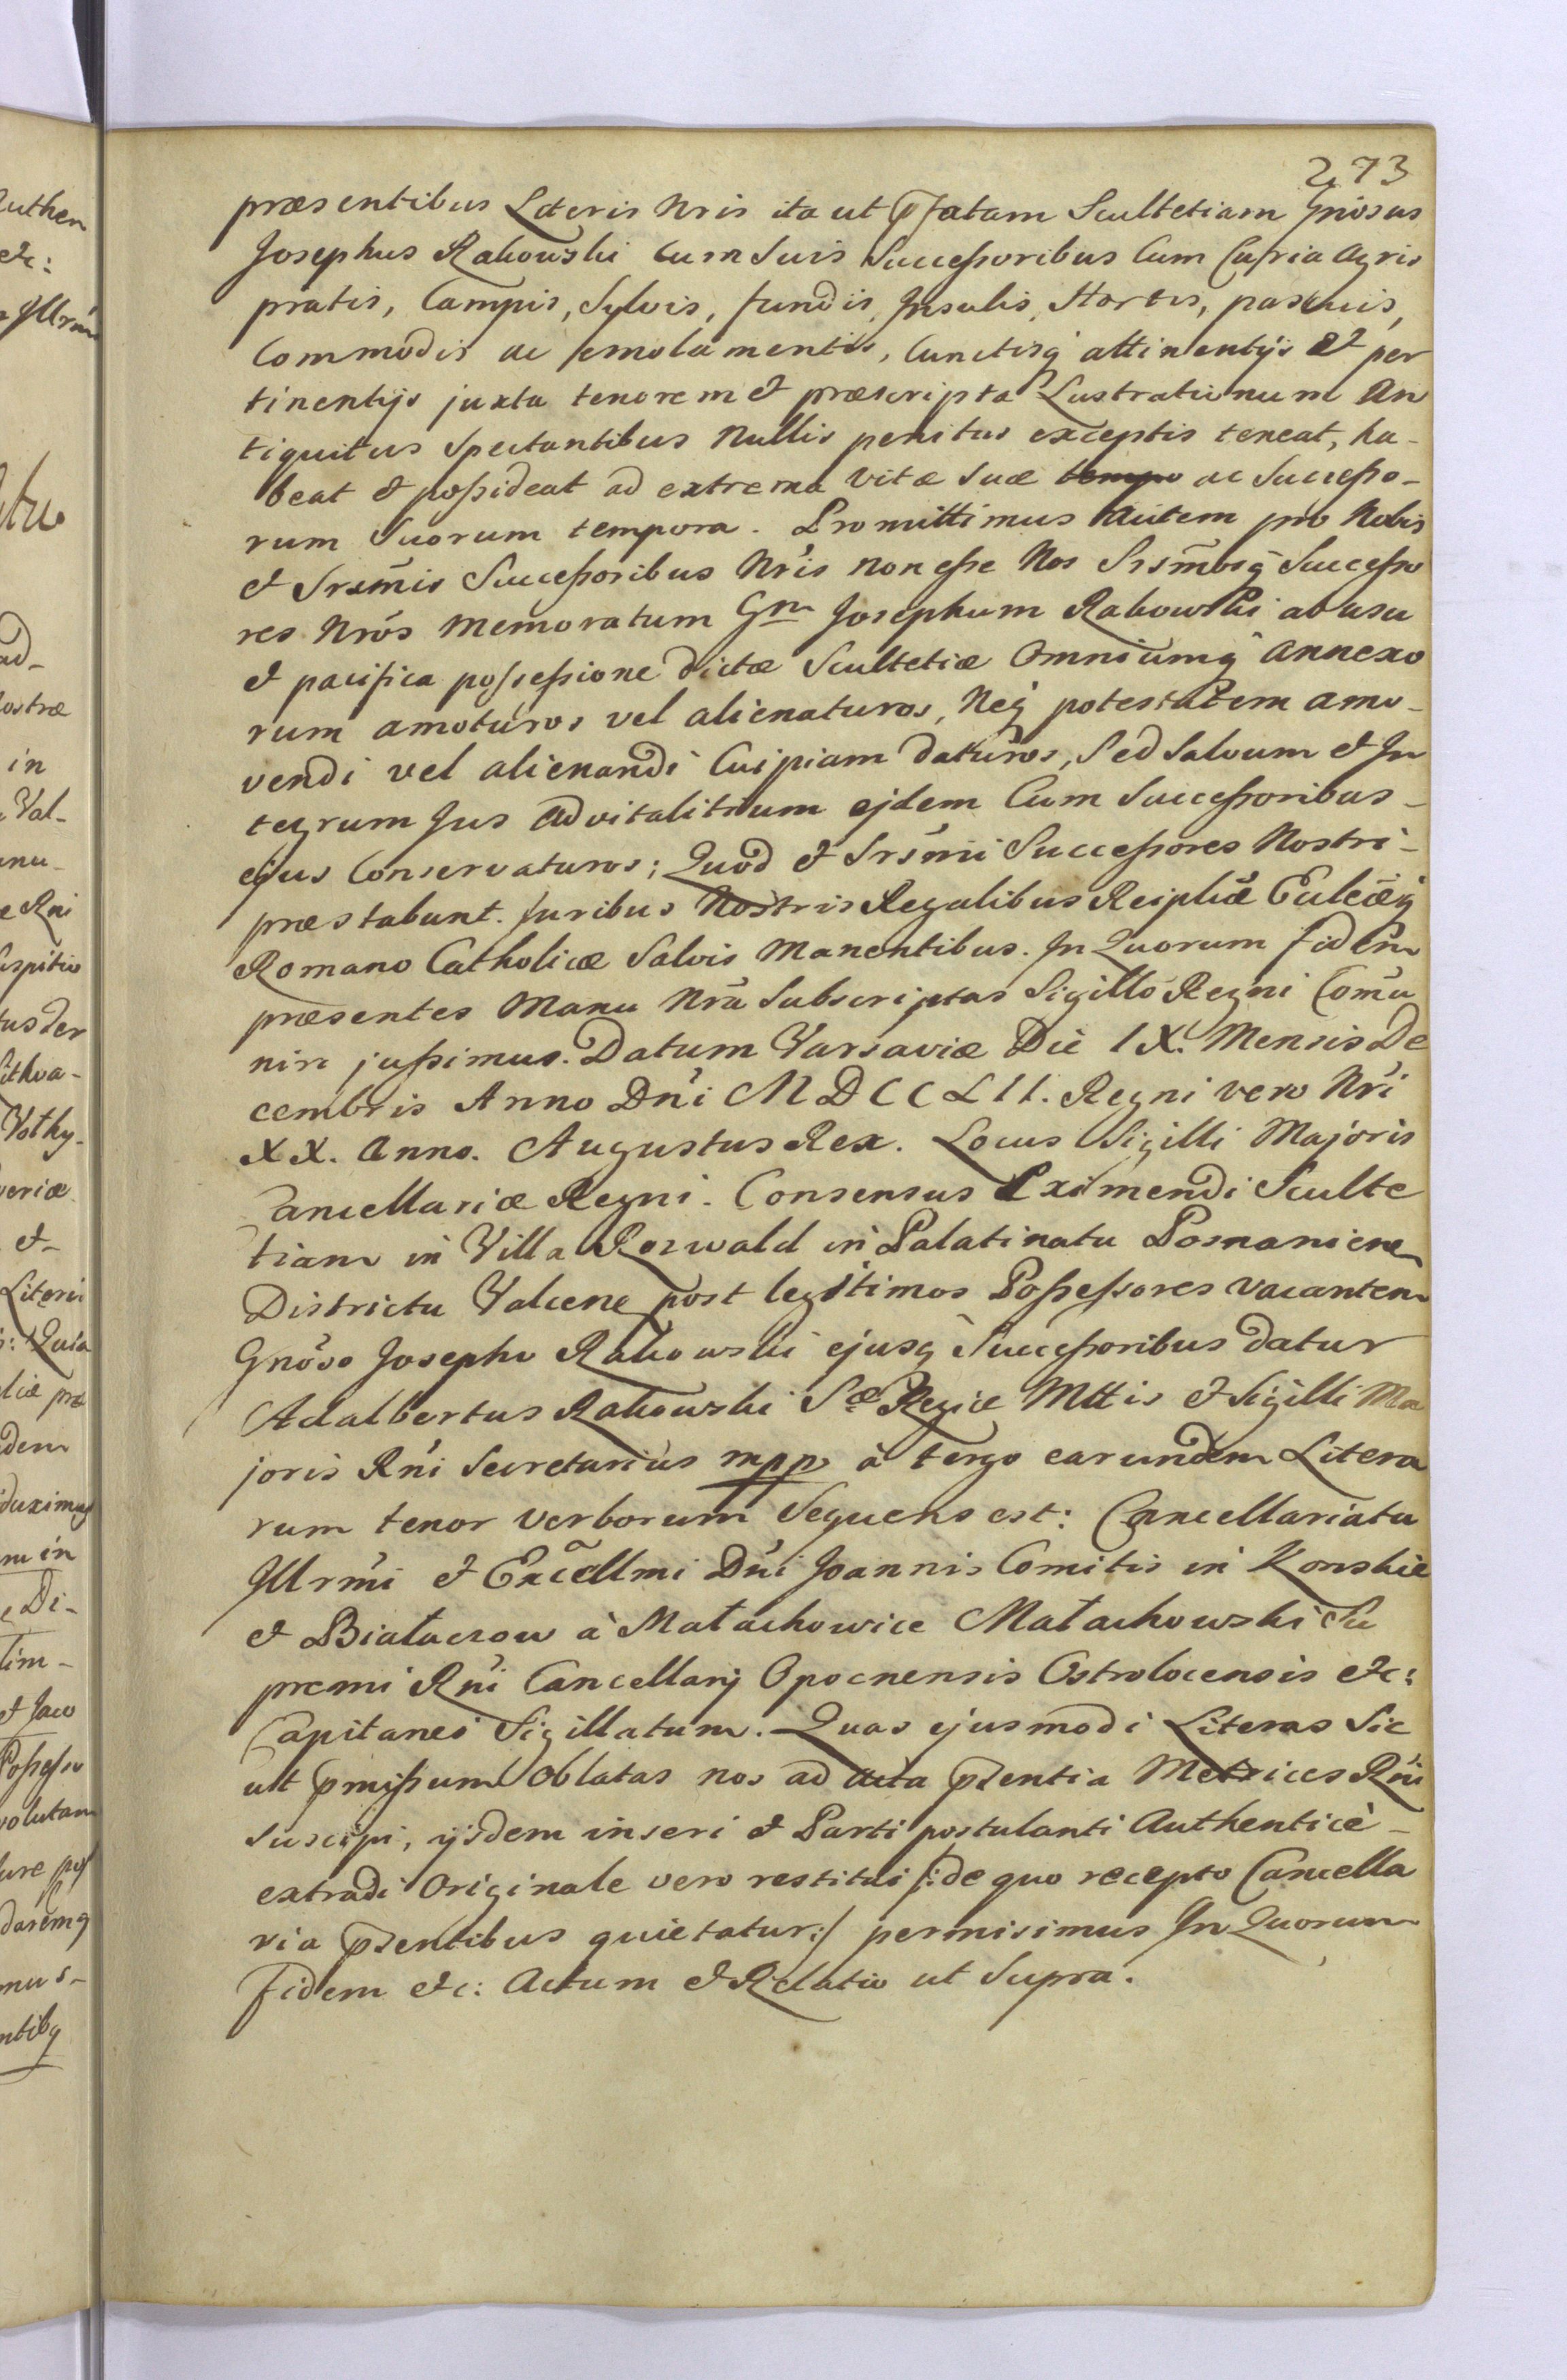 273
præsentibus Literis Nris ita ut pfatam Scultetiam Gnosus
Josephus Rakowski cum suis Successoribus Cum Curia agris
pratis, Campis, Sylvis, fundis, Insulis, Hortis, pascuis,
Commodis ac emolumentis, Cunctisq attinentijs et per
tinentijs juxta tenorem et præscripta Lustrationum An
tiquitus Spectantibus Nullis penitus exceptis teneat, ha-
beat et possideat ad extrema vitæ suæ tempo ac Successo-
rum Suorum tempora. Promittimus Autem pro Nobis
et Srsmis Successoribus Nris non esse Nos Srsmosq Successo
res Nros Memoratum Gm Josephum Rakowski ab usu
et pacifica possessione dictæ Scultetiæ Omniumq annexo
rum amoturos vel alienaturos, Neq potestatem amo-
vendi vel alienandi Cuipiam daturos, Sed Salvum et In
tegrum Jus advitalitium ejdem Cum Successoribus-
ejus Conservaturos; Quod et Srsmi Successores Nostri-
præstabunt. Juribus Nostris Regalibus Reiplicæ Eccleæq
Romano Catholicæ Salvis Manentibus. In Quorum fidem
præsentes Manu Nra Subscriptas Sigillo Regni Comu
niri jussimus. Datum Varsaviæ Die IX. Mensis De
cembris Anno Dni MDCCLII. Regni vero Nri
XX. Anno. Augustus Rex. Locus Sigilli Majoris
Cancellariæ Regni. Consensus Eximendi Sculte
tiam in Villa Roswald in Palatinatu Posnanien
Districtu Valcene post legitimos Possessores vacantem
Gnoso Josepho Rakowski ejusq Successoribus datur
Adalbertus Rakowski Sæ Regiæ Mttis et Sigilli Ma
joris Rni Secretarius mpp à tergo earundem Litera
rum tenor verborum Sequens est: Cancellariatu
Illrmi et Excellmi Dni Joannis Comitis in Konskie
et Białaczow à Małachowice Małachowski Su
premi Rni Cancellarij Opocnensis Ostrolocensis etc:
Capitanei Sigillatum. Quas ejusmodi Literas Sic
ut pmissum Oblatas nos ad Acta pæsentia Metrices Rni
suscipi, ijsdem inseri et Parti postulanti Authenticè-
extradi Originale vero restitui /: de quo recepto Cancella
ria pæsentibus quietatur :/ permisimus In Quorum
fidem etc: Actum et Relatio ut Supra.